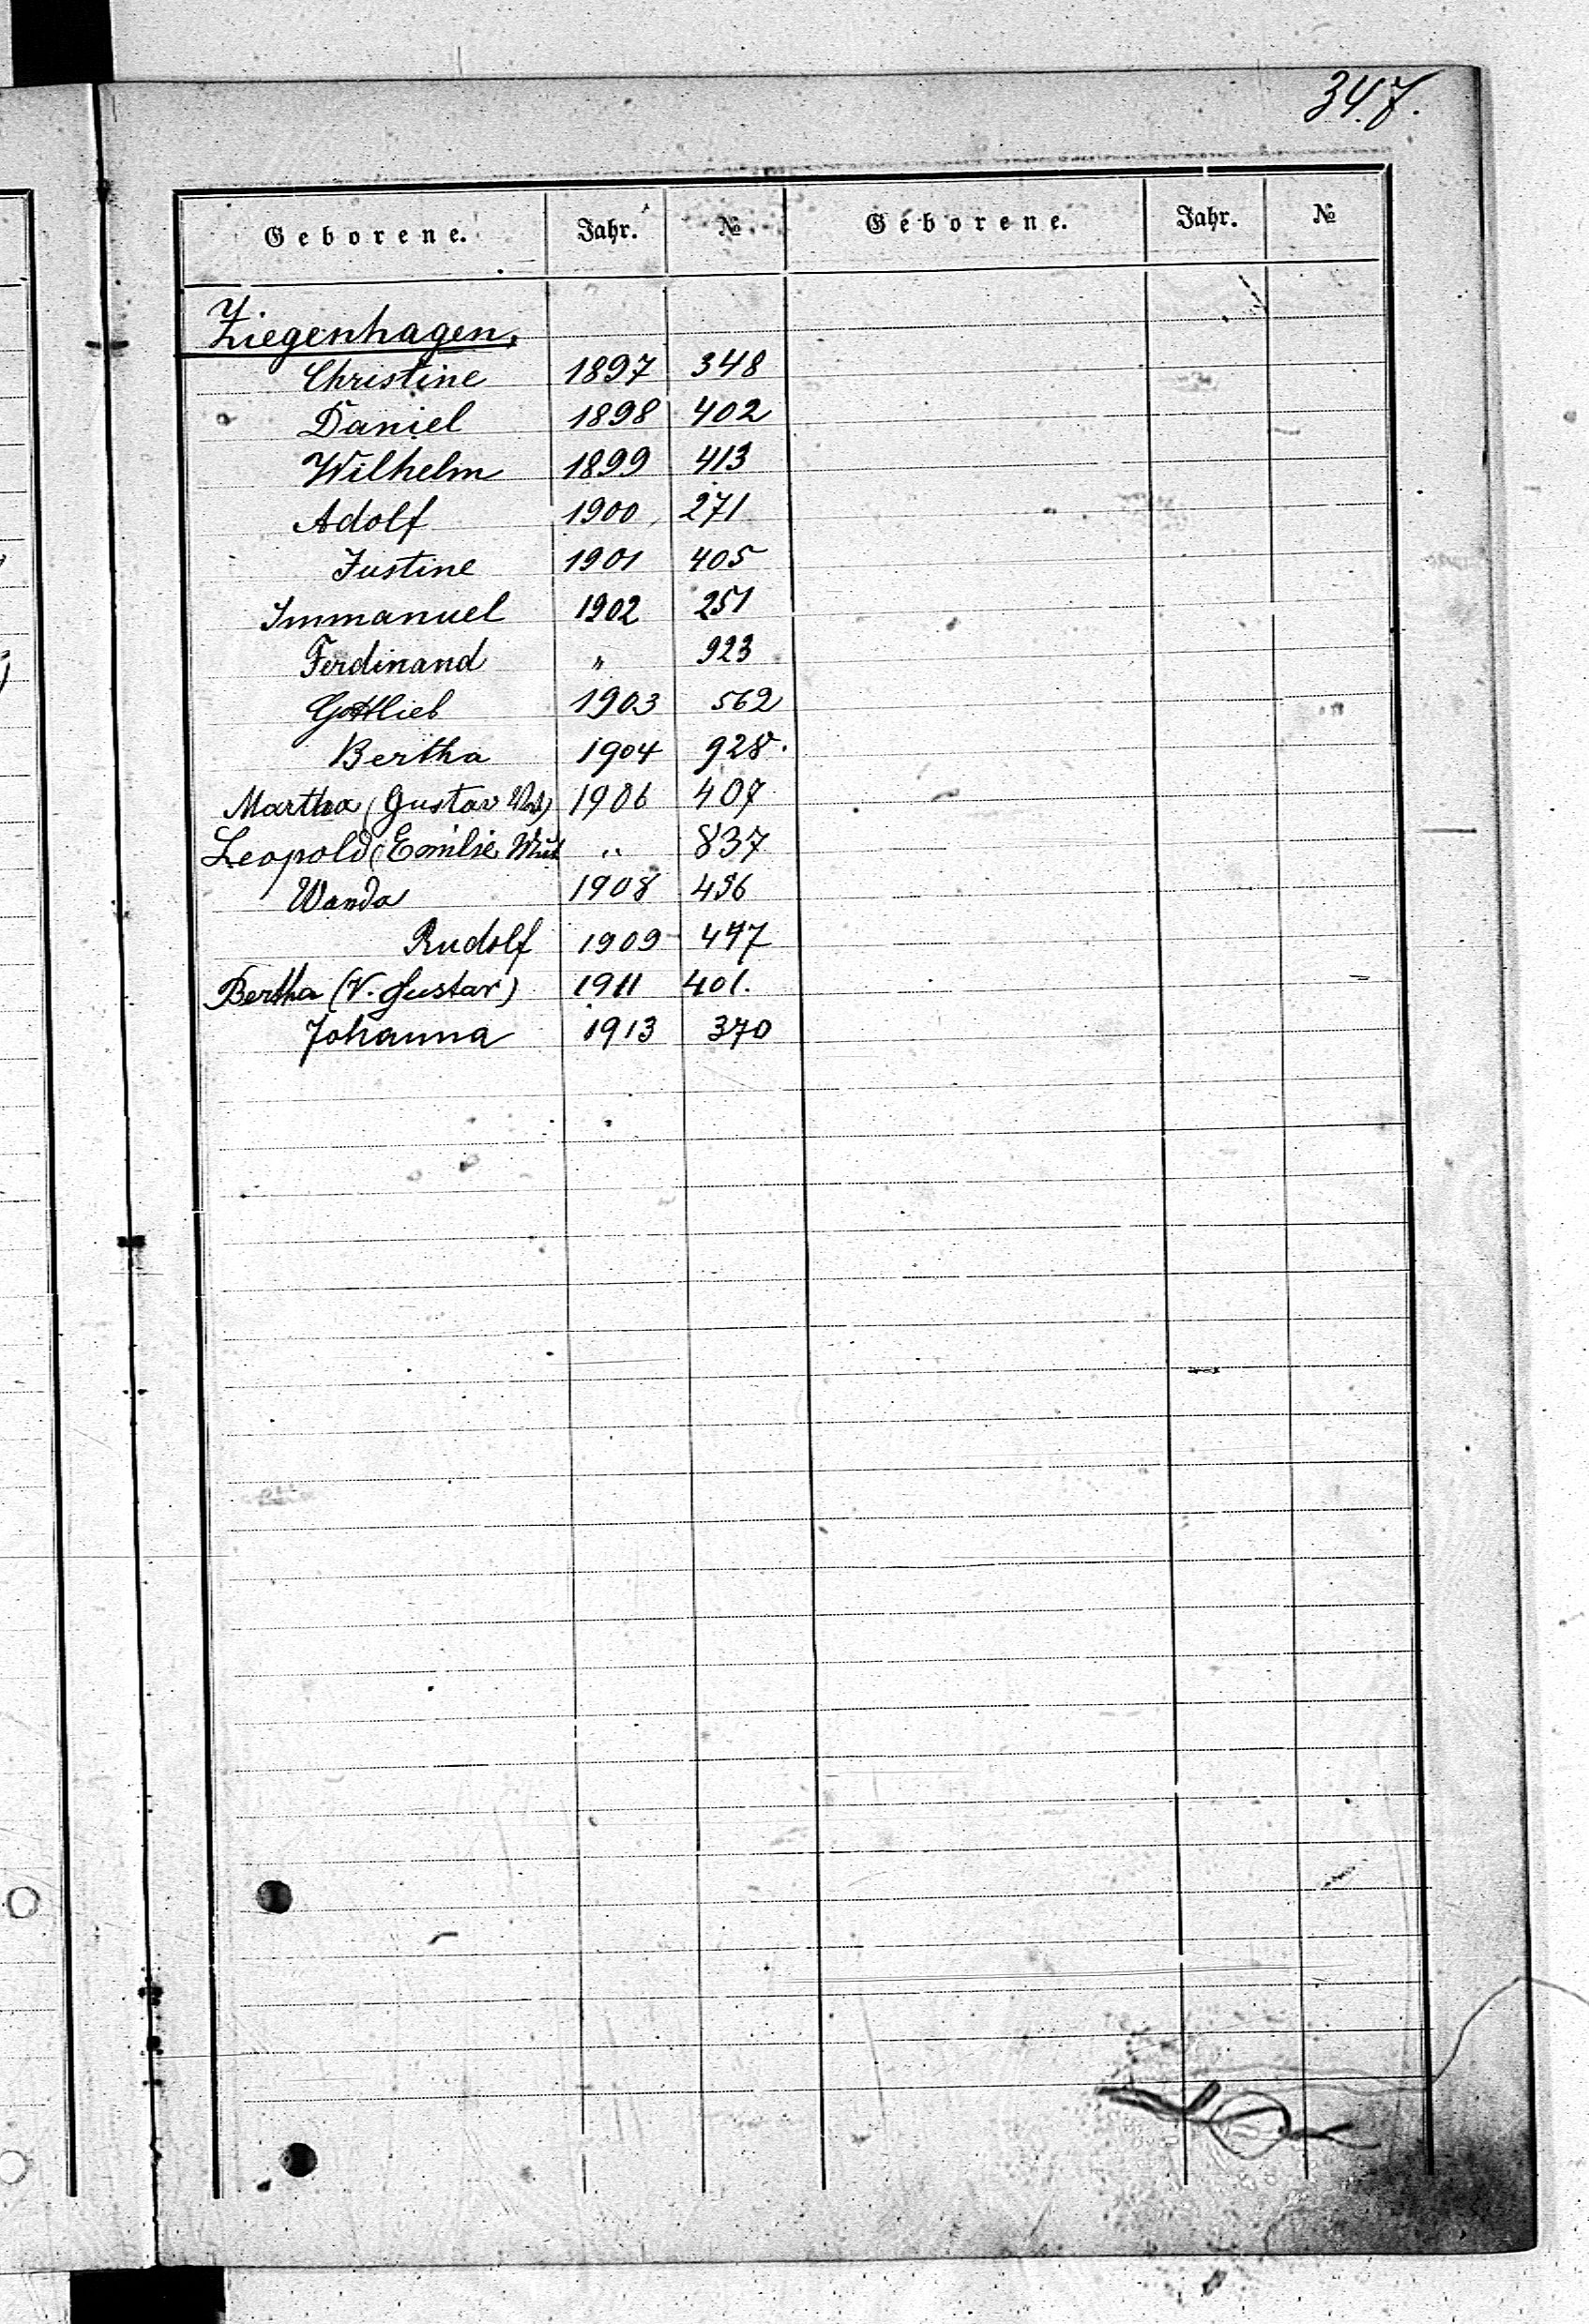 347.
Geborene. Jahr. № Geborene. Jahr. №
Ziegenhagen.
Christine 1897 348
Daniel 1898 402
Wilhelm 1899 413
Adolf 1900 271
Justine 1901 405
Immanuel 1902 251
Ferdinand " 923
Gottlieb 1903 562
Bertha 1904 928.
Martha (Gustav 1906 407
Leopold (Emilie " 837
Wanda 1908 436
Rudolf 1909 447
Bertha (V. Gustav) 1911 401.
Johanna 1913 370